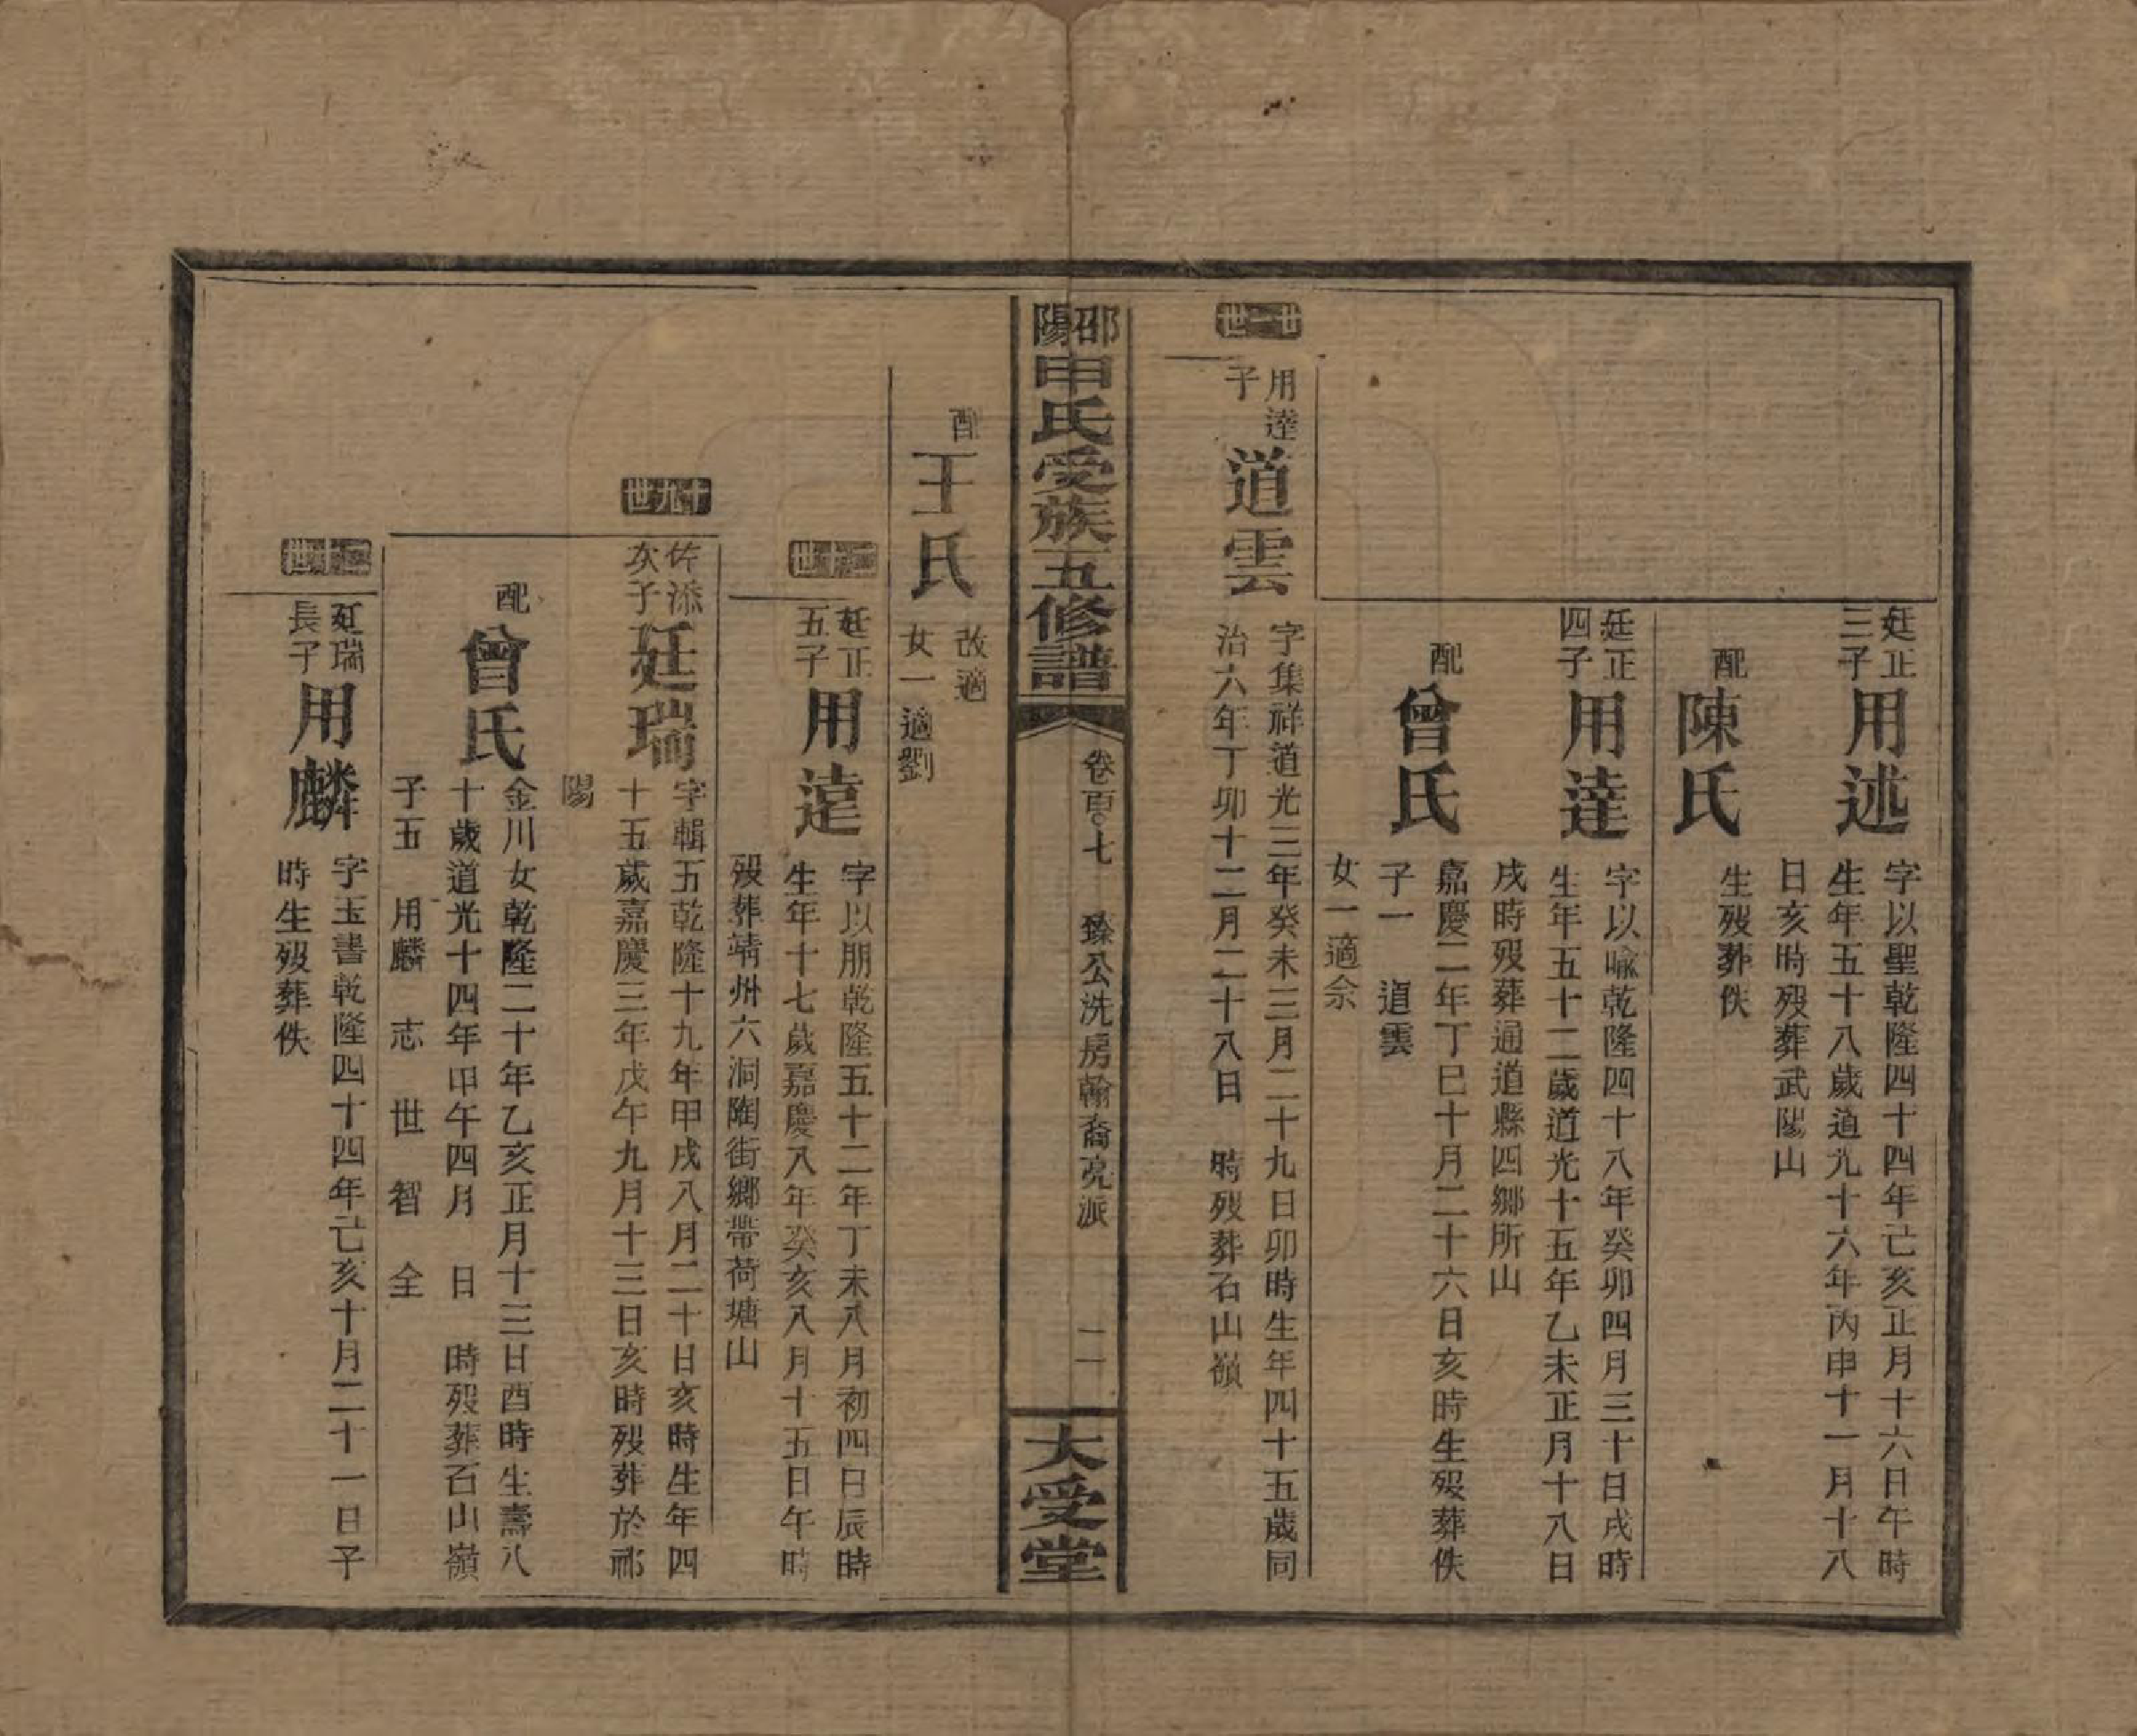 廷正三子
用述
字以聖乾隆四十四年己亥正月十六日午時
生年五十八歲道光十六年丙申十一月十八
日亥時歿葬武陽山
配
陳氏
生歿葬佚
廷正四子
用達
字以喻乾隆四十八年癸卯四月三十日戌時
生年五十二歲道光十五年乙未正月十八日
戌時歿葬通道縣四鄉所山
配
曾氏
嘉慶二年丁巳十月二十六日亥時生歿葬佚
子一 道雲
女一適佘
廿一世
用達子
道雲
字集祥道光三年癸未三月二十九日卯時生年四十五歲同
治六年丁卯十二月二十八日 時歿葬石山嶺
邵陽申氏受族五修譜
卷百〇七 臻公洗房翰裔亮派
二一
大受堂
配
王氏
改適
女一適劉
二十世
廷正五子
用遠
字以朋乾隆五十二年丁未八月初四日辰時
生年十七歲嘉慶八年癸亥八月十五日午時
歿葬靖州六洞陶街鄉帶荷塘山
十九世
佐添次子
廷瑞
字輯五乾隆十九年甲戌八月二十日亥時生年四
十五歲嘉慶三年戊午九月十三日亥時歿葬於祁
陽
配
曾氏
金川女乾隆二十年乙亥正月十三日酉時生壽八
十歲道光十四年甲午四月 日 時歿葬石山嶺
子五 用麟 志 世 智 全
二十世
廷瑞長子
用麟
字玉書乾隆四十四年己亥十月二十一日子
時生歿葬佚